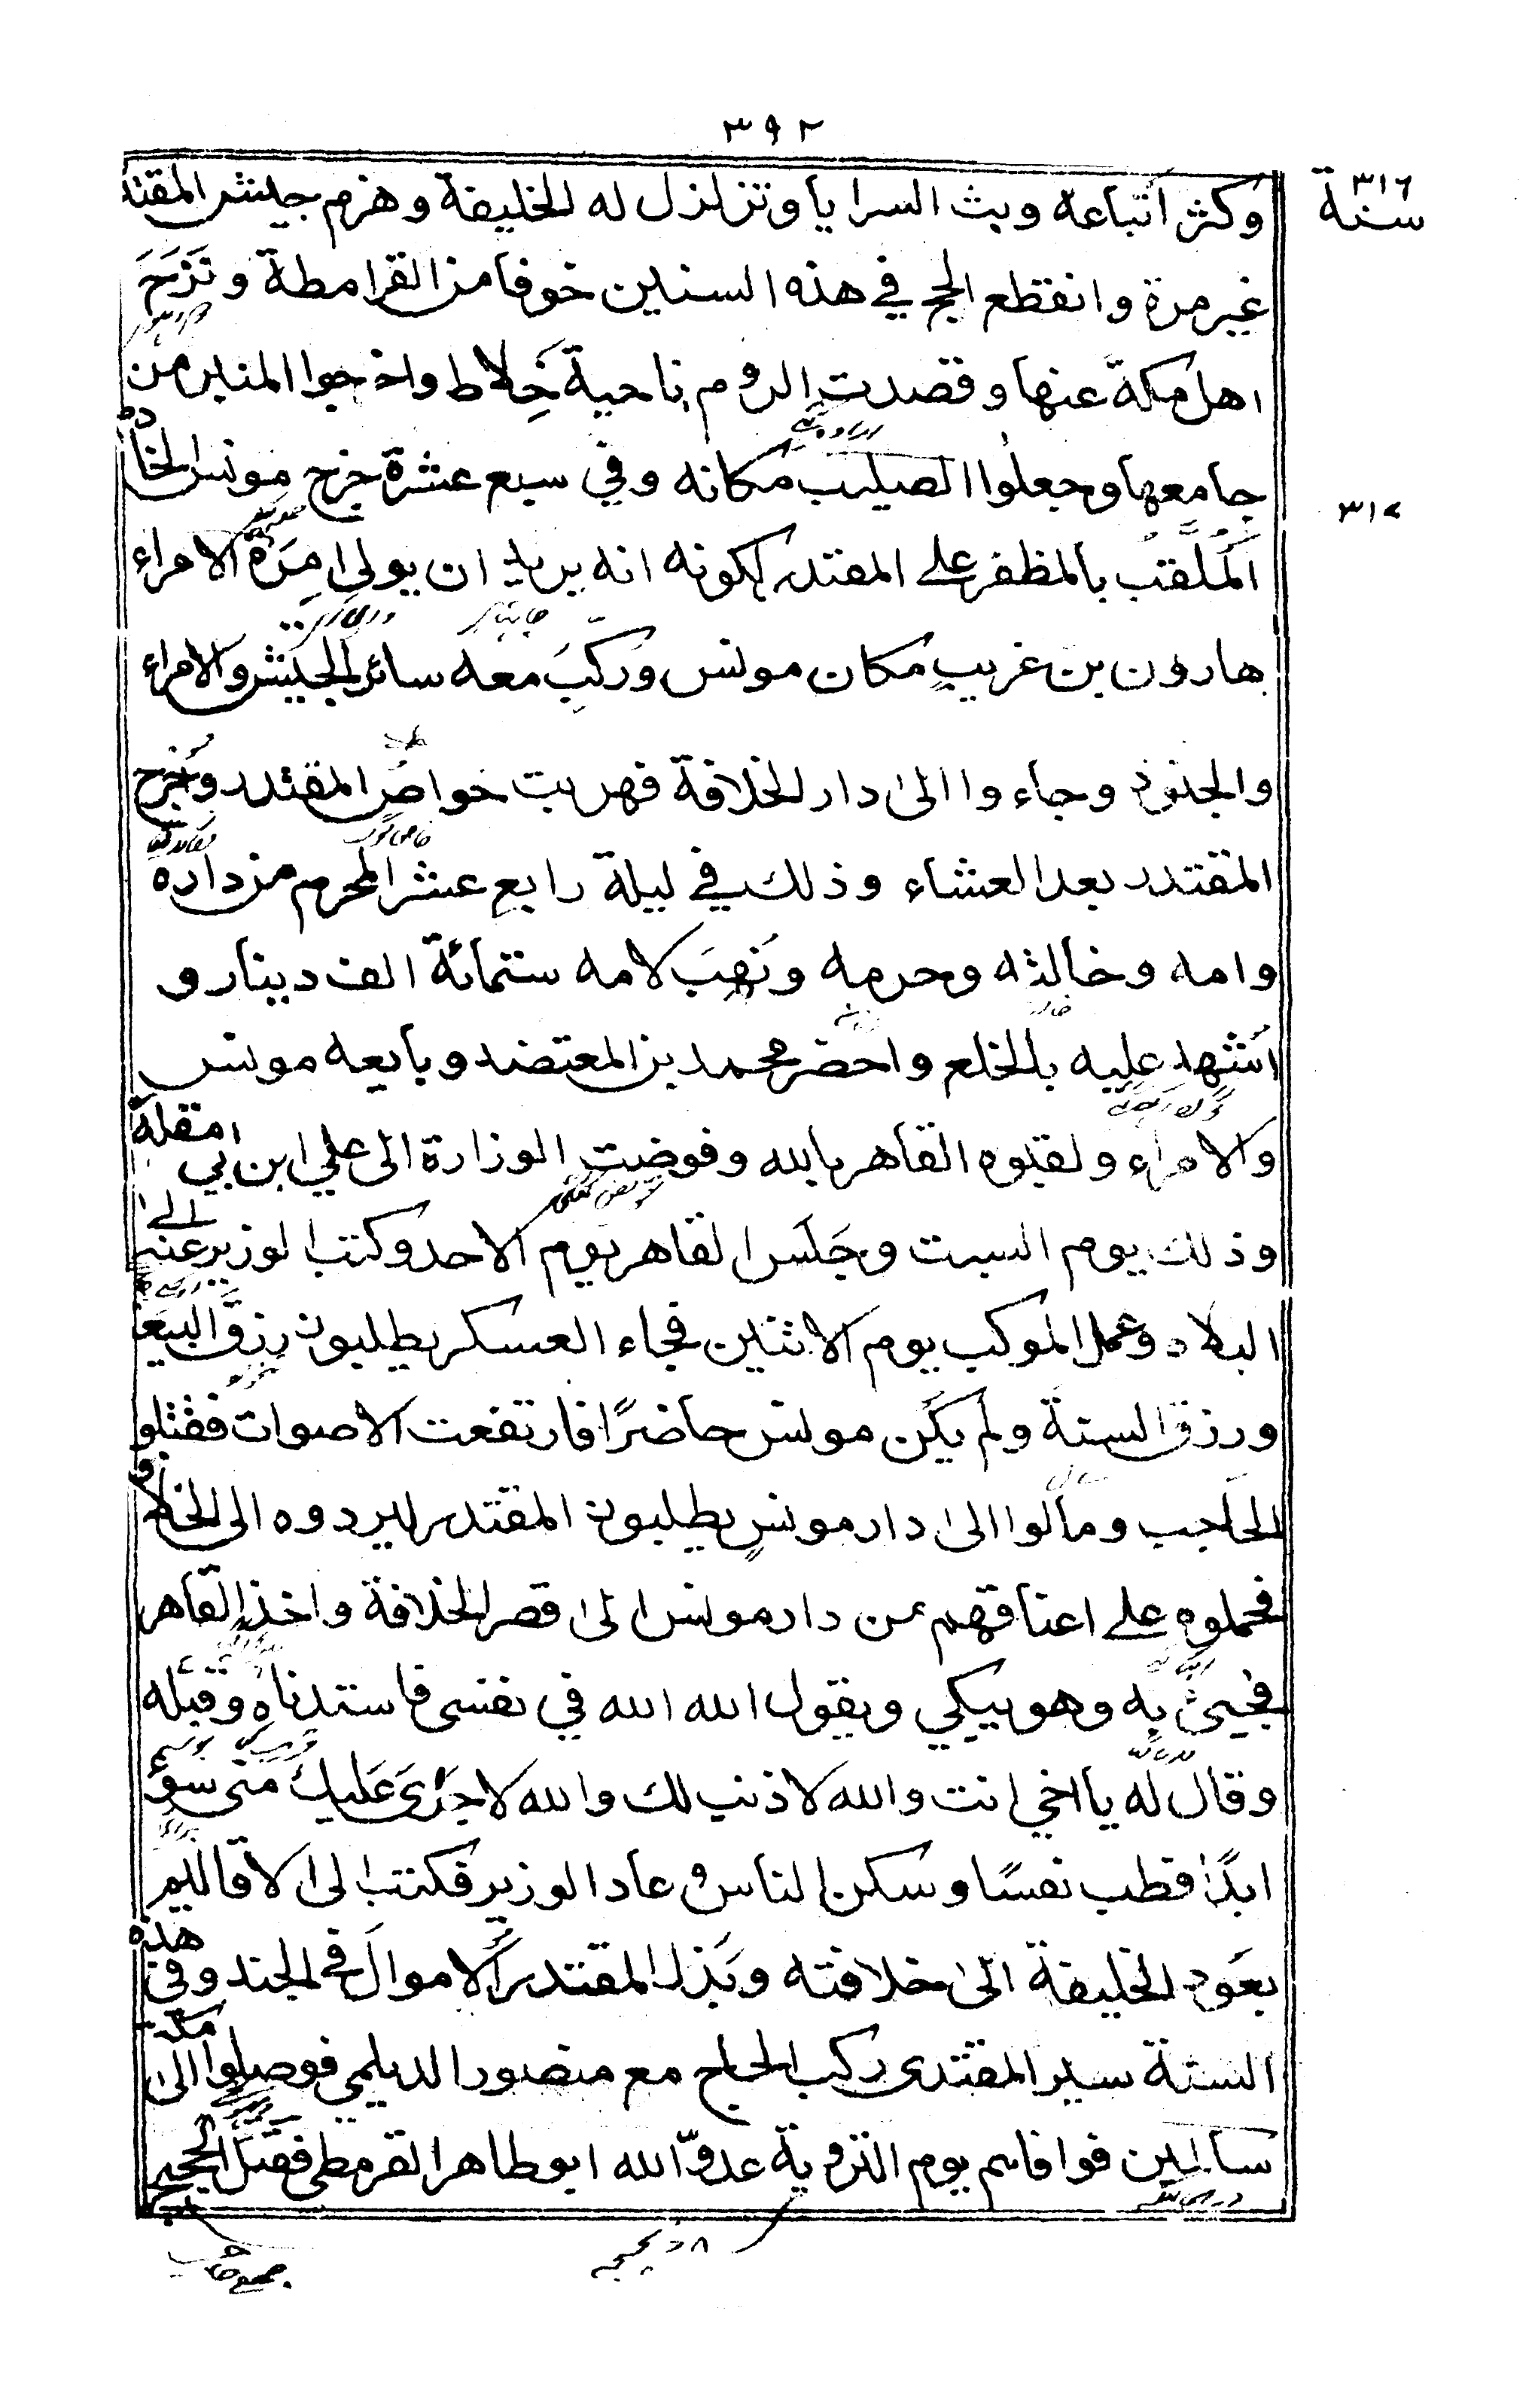 ٣٩٢
سنة ٣١٦
وكثر اتباعه وبث السرايا وتزلزل له الخليفة وهزم جيش المقتد
غير مرة وانقطع الحج في هذه السنين خوفا من القرامطة ونَزَحَ
اهل مكة عنها وقصدت الروم ناحية خِلاط واخرجوا المنبر من
جامعها وجعلوا الصليب مكانه وفي سبع عشرة خرج مونس الخادم
٣١٧
المُلَقّب بالمظفر على المقتدر لكونه انه يريد ان يولى اِمرَة الامراء
هارون بن غريبٍ مكان مونس ورَكِبَ معه سائر الجيش والامراء
والجنود وجاءوا الى دار الخلافة فهربت خواص المقتدر وخرج
المقتدر بعد العشاء وذلك في ليلة رابع عشر المحرم من داره
وامه وخالته وحرمه ونُهِبَ لامه ستمائة الف دينار و
اشهد عليه بالخلع واحضر محمد بن المعتضد وبايعه مونس
والامراء ولقبوه القاهر بالله وفوضت الوزارة الى علي ابن بي مقلة
وذلك يوم السبت وجَلَسَ القاهر يوم الاحد وكتب الوزير عنه الى
البلاد وعمل الموكب يوم الاثنين فجاء العسكر يطلبون رزق البيعة
ورزق السنة ولم يكن مونس حاضرًا فارتفعت الاصوات فقتلو
الحاجب ومالوا الى دار مونسٍ يطلبون المقتدر ليردوه الى الخلافة
فحملوه على اعناقهم من دار مونس الى قصر الخلافة واخذ القاهر
فجيئ به وهو يبكي ويقول الله الله في نفسى فاستدناه وقبله
وقال له يا اخي انت والله لا ذنب لك والله لا جَرَى عَليك منى سوءٌ
ابدًا فطب نفسًا وسكن الناس و عاد الوزير فكتب الى الاقاليم
بعَود الخليفة الى خلافته وبَذل المقتدر الاموال في الجند وفي هذه
السنة سير المقتدى ركب الحاج مع منصور الديلمي فوصلوا الى مكة
سالمين فوافاهم يوم التروية عدوّ الله ابو طاهر القرمطى فقتل الحجيج